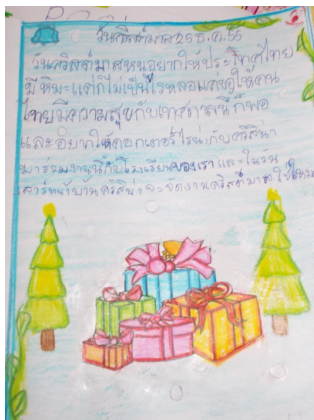 วันคริสต์มาส 25 ธ.ค. 55
วันคริสต์มาสหนูอยากให้ประเทศไทย
มีหิมะแต่ก็ไม่เป็นไรหลอแค่ขอให้คน
ไทยมีความสุขกับเทศกาลนี้ก็พอ
และอยากให้ดอกเตอร์ กับคริสติน่า
มาร่วมงานนี้กับโรงเรียนของเรา และในวัน
จะจัดงานคริสต์มาส